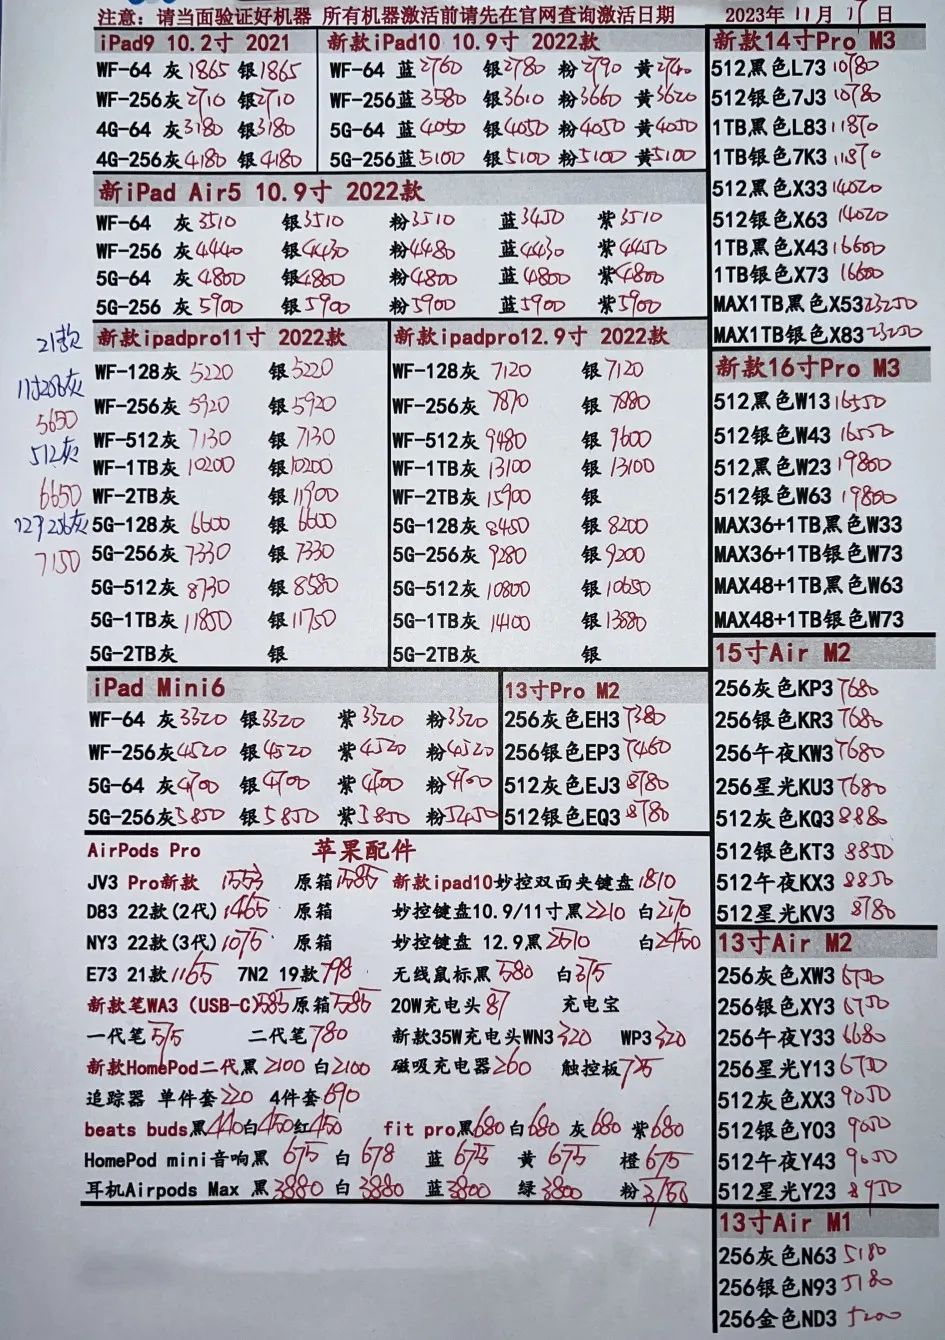 注意：请当面验证好机器 所有机器激活前请先在官网查询激活日期 2023年 11月 17日
iPad9 10.2寸 2021
WF-64 灰1865 银1865
WF-256灰2710 银2710
4G-64 灰3180 银3180
4G-256灰4180 银4180
新款iPad10 10.9寸 2022款
WF-64 蓝2760 银2780 粉2790 黄2740
WF-256蓝3580 银3610 粉3660 黄3620
5G-64 蓝4050 银4050 粉4050 黄4050
5G-256蓝5100 银5100 粉5100 黄5100
新iPad Air5 10.9寸 2022款
WF-64 灰3510 银3510 粉3510 蓝3450 紫3510
WF-256 灰4440 银4430 粉4480 蓝4430 紫4450
5G-64 灰4800 银4800 粉4800 蓝4800 紫4800
5G-256 灰5900 银5900 粉5900 蓝5900 紫5900
21款
11寸256灰
5650
512灰
6650
12.9 256灰
7150
新款ipadpro11寸 2022款
WF-128灰 5220 银5220
WF-256灰 5920 银5920
WF-512灰 7130 银7130
WF-1TB灰 10200 银10200
WF-2TB灰 银11900
5G-128灰 6600 银6600
5G-256灰 7330 银7330
5G-512灰 8730 银8580
5G-1TB灰 11850 银11750
5G-2TB灰 银
新款ipadpro12.9寸 2022款
WF-128灰 7120 银7120
WF-256灰 7870 银7880
WF-512灰 9480 银9600
WF-1TB灰 13100 银13100
WF-2TB灰 15900 银
5G-128灰 8450 银8200
5G-256灰 9280 银9200
5G-512灰 10800 银10650
5G-1TB灰 14100 银13880
5G-2TB灰 银
iPad Mini6
WF-64 灰3320 银3320 紫3320 粉3320
WF-256灰4520 银4520 紫4520 粉4520
5G-64 灰4700 银4700 紫4700 粉4700
5G-256灰5850 银5850 紫5850 粉5450
13寸Pro M2
256灰色EH3 7380
256银色EP3 7460
512灰色EJ3 8780
512银色EQ3 8780
AirPods Pro 苹果配件
JV3 Pro新款 1553 原箱1585 新款ipad10妙控双面夹键盘1810
D83 22款(2代)1465 原箱 妙控键盘10.9/11寸黑2210 白2170
NY3 22款(3代)1075 原箱 妙控键盘 12.9黑2510 白2450
E73 21款1165 7N2 19款798 无线鼠标黑580 白375
新款笔WA3 (USB-C)585原箱585 20W充电头87 充电宝
一代笔575 二代笔780 新款35W充电头WN3 320 WP3 320
新款HomePod二代黑2100 白2100 磁吸充电器260 触控板725
追踪器 单件套220 4件套690
beats buds黑440白450红450 fit pro黑680白680 灰680 紫680
HomePod mini音响黑 675 白 678 蓝 675 黄 675 橙675
耳机Airpods Max 黑3880 白3880 蓝3800 绿3800 粉
新款14寸Pro M3
512黑色L73 10780
512银色7J3 10780
1TB黑色L83 11870
1TB银色7K3 11870
512黑色X33 14020
512银色X63 14020
1TB黑色X43 16600
1TB银色X73 16600
MAX1TB黑色X53 23250
MAX1TB银色X83 23250
新款16寸Pro M3
512黑色W13 16550
512银色W43 16550
512黑色W23 19800
512银色W63 19800
MAX36+1TB黑色W33
MAX36+1TB银色W73
MAX48+1TB黑色W63
MAX48+1TB银色W73
15寸Air M2
256灰色KP3 7680
256银色KR3 7680
256午夜KW3 7680
256星光KU3 7680
512灰色KQ3 8880
512银色KT3 8850
512午夜KX3 8850
512星光KV3 8780
13寸Air M2
256灰色XW3 6750
256银色XY3 6750
256午夜Y33 6680
256星光Y13 6750
512灰色XX3 9050
512银色Y03 9050
512午夜Y43 9050
512星光Y23 8950
13寸Air M1
256灰色N63 5180
256银色N93 5180
256金色ND3 5200